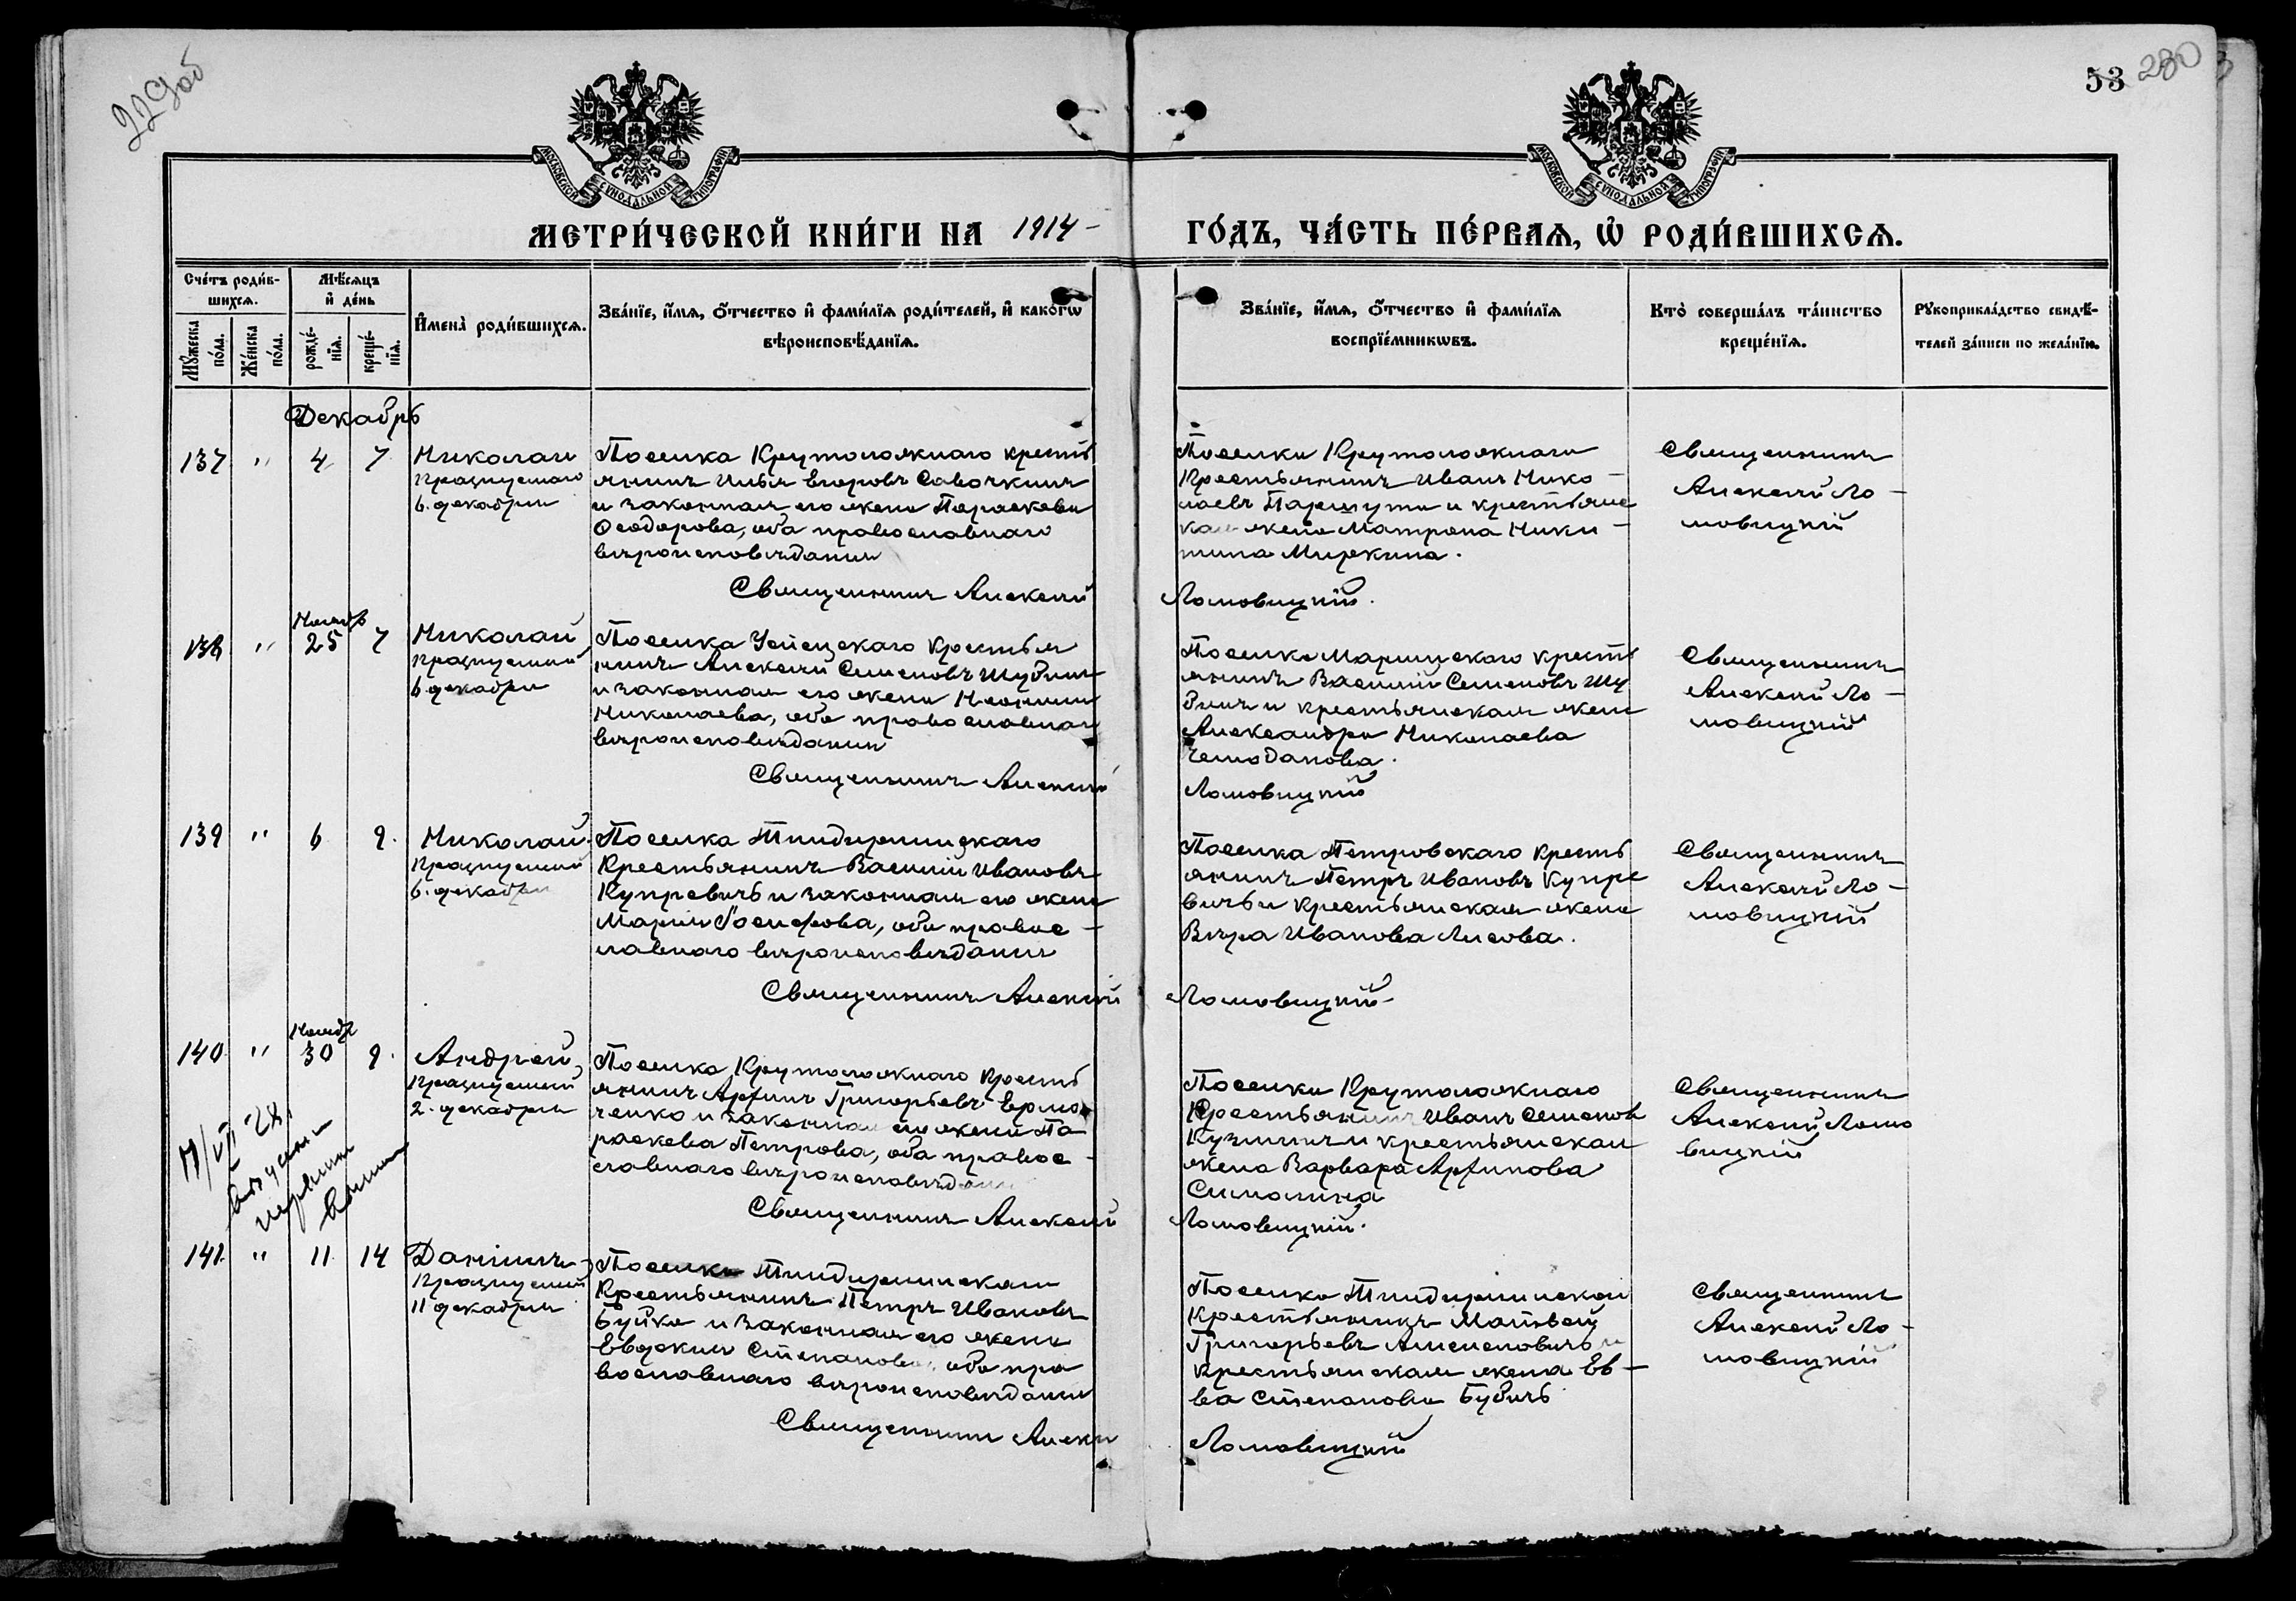 229об
53 230
МОСКОВСКОЙ СѴНОДАЛЬНОЙ ТИПОГРАФІИ
МОСКОВСКОЙ СѴНОДАЛЬНОЙ ТИПОГРАФІИ
МЕТРИ́ЧЕСКОЙ КНИ́ГИ НА 1914 – ГО́ДЪ, ЧА́СТЬ ПЕ́РВАѦ, Ѽ РОДИ́ВШИХСѦ.
Сче́тъ роди́в-
шихсѧ.
Мѹ́жеска по́ла.
Же́нска по́ла.
Мѣ́сѧцъ
и҆ де́нь
рожде́-
нїѧ.
креще́-
нїѧ.
И҆мена̀ роди́вшихсѧ.
Зва́нїе, и҆́мѧ, ѻ҆́тчество и҆ фами́лїѧ роди́телей, и҆ како́гѡ
вѣроисповѣ́данїѧ.
Зва́нїе, и҆́мѧ, ѻ҆́тчество и҆ фами́лїѧ
воспрїе́мникѡвъ.
Кто̀ соверша́лъ та́инство
креще́нїѧ.
Рꙋкоприкла́дство свидѣ́-
телей за́писи по жела́нїю.
Декабрь
137 " 4 7
Николай
празнуемаго
6. декабря
Поселка Крутоложнаго кресть
янинъ Илья Егоровъ Савочкинъ
и законная его жена Параскева
Ѳеодорова, оба православнаго
вѣроисповѣданія
Священникъ Алексей
Поселка Крутоложнаго
Крестьянинъ Иванъ Нико-
лаевъ Паршута и крестьянс
кая жена Матрона Ники-
тина Мирекина.
Ломовицкій.
Священникъ
Алексей Ло-
мовицкій
Ноябрь
138 " 25 7
Николай
празнуемый
6 декабря
Поселка Крестья
нинъ Алексей Семеновъ Шубинъ
и законная его жена
Николаева, оба православнаго
вѣроисповѣданія
Священникъ Алексей
Поселка Маріинскаго кресть
янинъ Василій Семеновъ Шу
бинъ и крестьянская жена
Александра Николаева
Чемоданова.
Ломовицкій
Священникъ
Алексей Ло-
мовицкій
139 " 6 9.
Николай
Празнуемый
6. декабря
Поселка
Крестьянинъ Василій Ивановъ
Купревичъ и законная его жена
Марія Іосифова, оба правос-
лавнаго вѣроисповѣданія
Священникъ Алексей
Поселка Петровскаго кресть
янинъ Петръ Ивановъ Купре
вичъ и крестьянская жена
Вѣра Иванова Лисова.
Ломовицкій
Священникъ
Алексей Ло-
мовицкій
Ноябр
140 " 30 9.
Андрей,
Празнуемый
2. декабря
Поселка Крутоложнаго Кресть
янинъ Архипъ Григорьевъ Ермо
ченко и законная его жена Па
раскева Петрова, оба правос-
лавнаго вѣроисповѣданія
Священникъ Алексей
Поселка Крутоложнаго
Крестьянинъ Иванъ Семенов
Кузминъ и крестьянская
жена Варвара Архипова
Симакина
Ломовицкій.
Священникъ
Алексей Ломо
вицкій
141. " 11. 14
Даніилъ
Празнуемый
11 декабря
Поселка
Крестьянинъ Петръ Ивановъ
Буйко и законная его жена
Евдокія Степанова, оба пра
вославнаго вѣроисповѣданія
Священникъ
Поселка
крестьянинъ Матвей
Григорьевъ и
крестьянская жена Ев-
ва Степанова Будичъ
Ломовицкій
Священникъ
Алексей Ло-
мовицкій